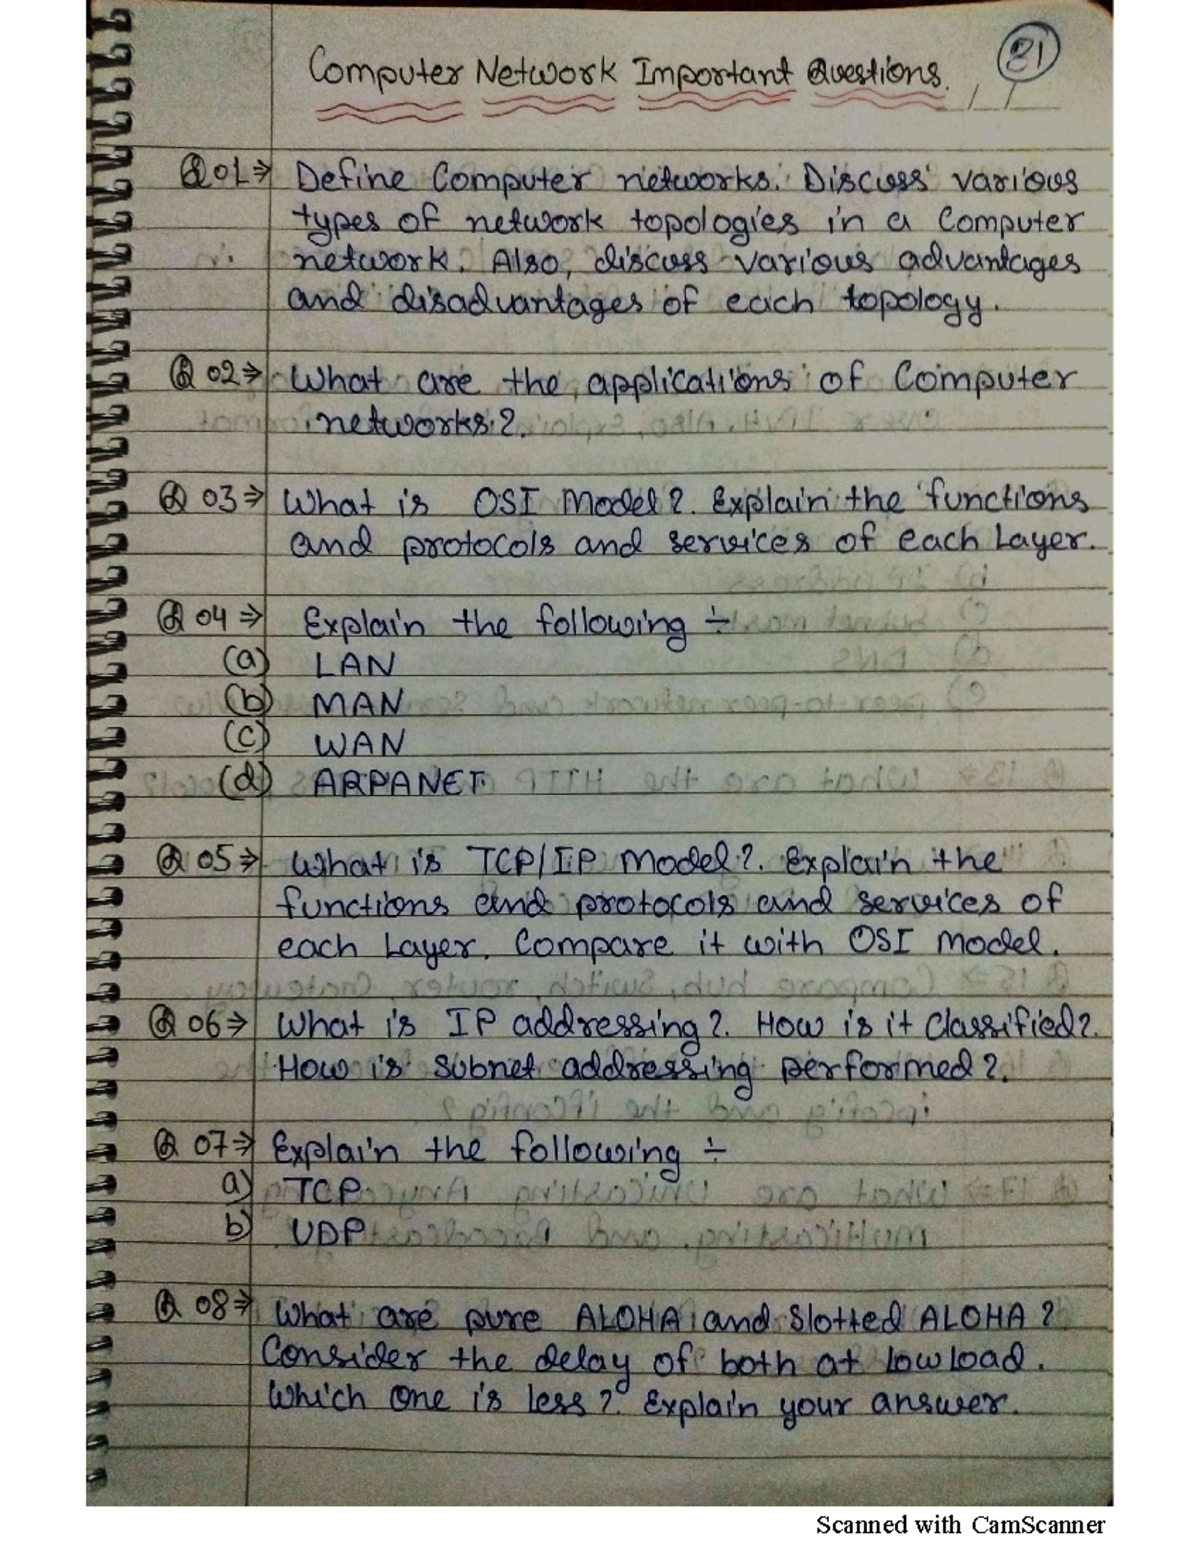 21
Computer Network Important Questions.
Q 01⇒ Define Computer networks. Discuss various
types of network topologies in a Computer
network. Also, discuss various advantages
and disadvantages of each topology.
Q 02⇒ What are the applications of Computer
networks?.
Q 03⇒ What is OSI Model?. Explain the functions
and protocols and services of each Layer.
Q 04⇒ Explain the following ÷
(a) LAN
(b) MAN
(c) WAN
(d) ARPANET.
Q 05⇒ What is TCP/IP Model?. Explain the
functions and protocols and services of
each Layer. Compare it with OSI Model.
Q 06⇒ What is IP addressing?. How is it classified?.
How is Subnet addressing performed?.
Q 07⇒ Explain the following ÷
a) TCP
b) UDP
Q 08⇒ What are pure ALOHA and Slotted ALOHA?
Consider the delay of both at low load.
Which one is less? Explain your answer.
Scanned with CamScanner